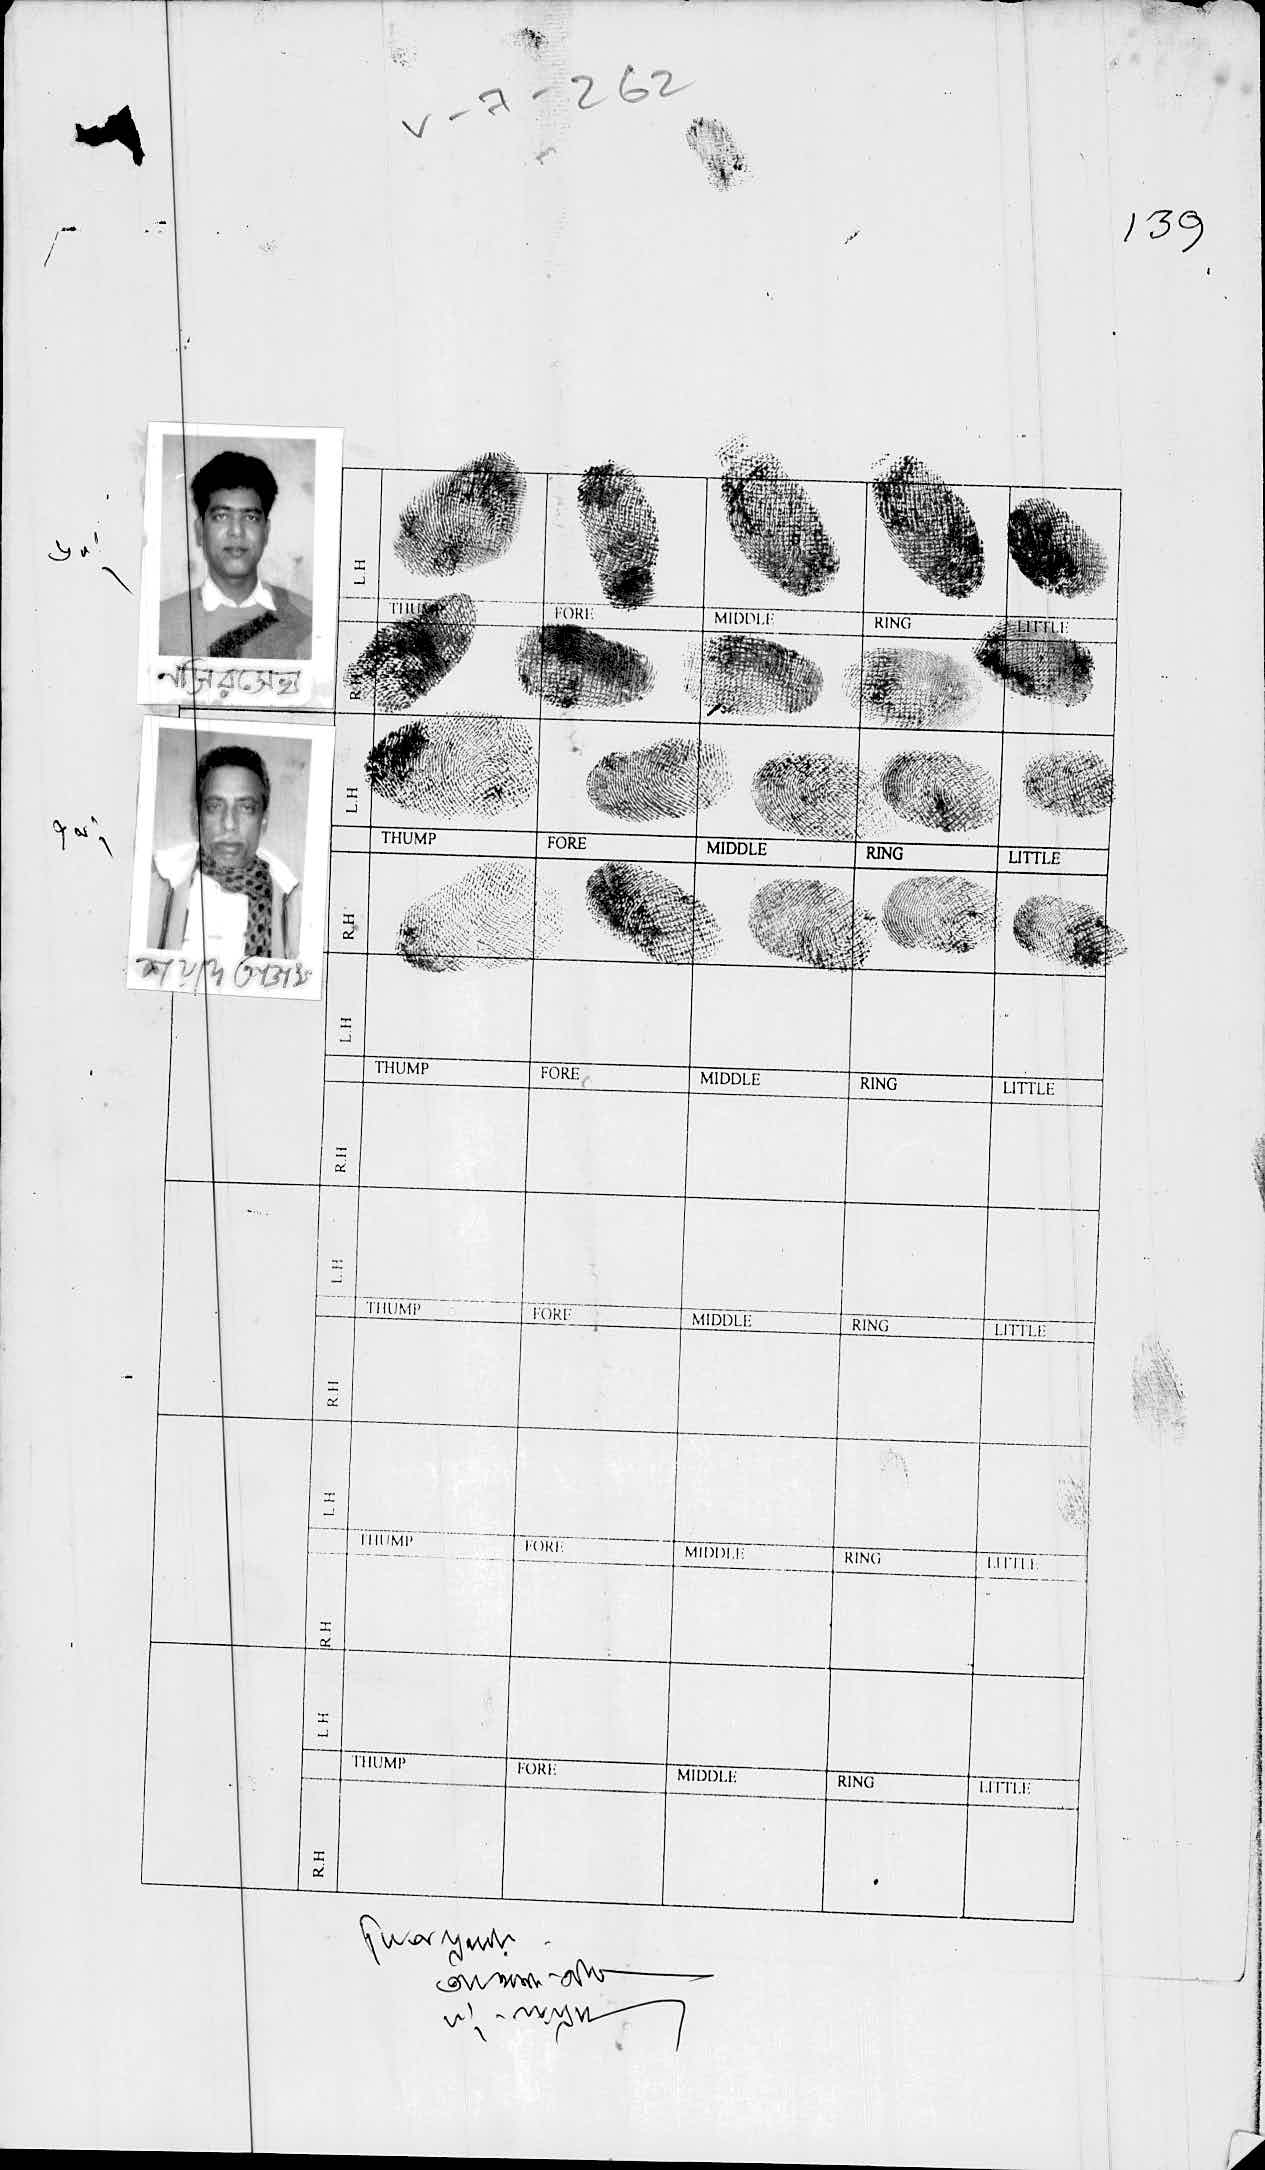 V-7-262
139
L.H
THUMP FORE MIDDLE RING LITTLE
R.H
L.H
THUMP FORE MIDDLE RING LITTLE
R.H
L.H
THUMP FORE MIDDLE RING LITTLE
R.H
L.H
THUMP FORE MIDDLE RING LITTLE
R.H
L.H
THUMP FORE MIDDLE RING LITTLE
R.H
L.H
THUMP FORE MIDDLE RING LITTLE
R.H